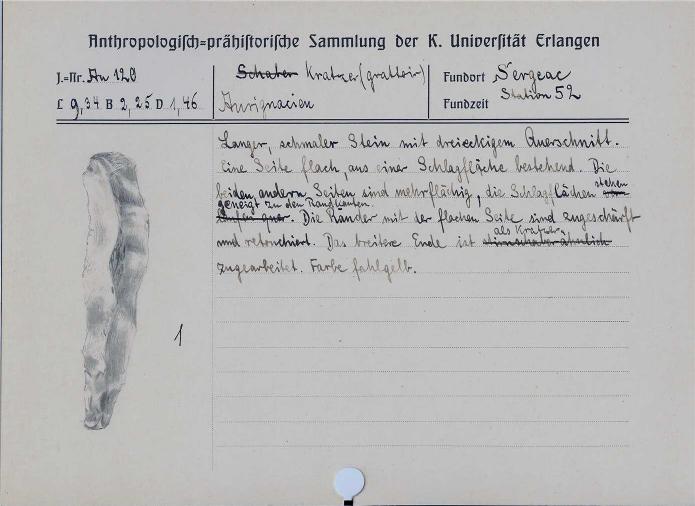 Anthropologisch=prähistorische Sammlung der K. Universität Erlangen
J.=Nr. Au 120
Schaber Kratzer (grattoir)
Fundort Sergeac
L 9,34 B 2,25 D 1,46
Aurignacien
Fundzeit Station 52
Langer, schmaler Stein mit dreieckigem Querschnitt.
Eine Seite flach, aus einer Schlagfläche bestehend. Die
beiden andern Seiten sind mehrflächig, die Schlagflächen stehen
geneigt zu den Randkanten.
laufen quer. Die Ränder mit der flachen Seite sind zugeschärft
als Kratzer
und retouchiert. Das breitere Ende ist stirnschaberähnlich
zugearbeitet. Farbe fahlgelb.
1